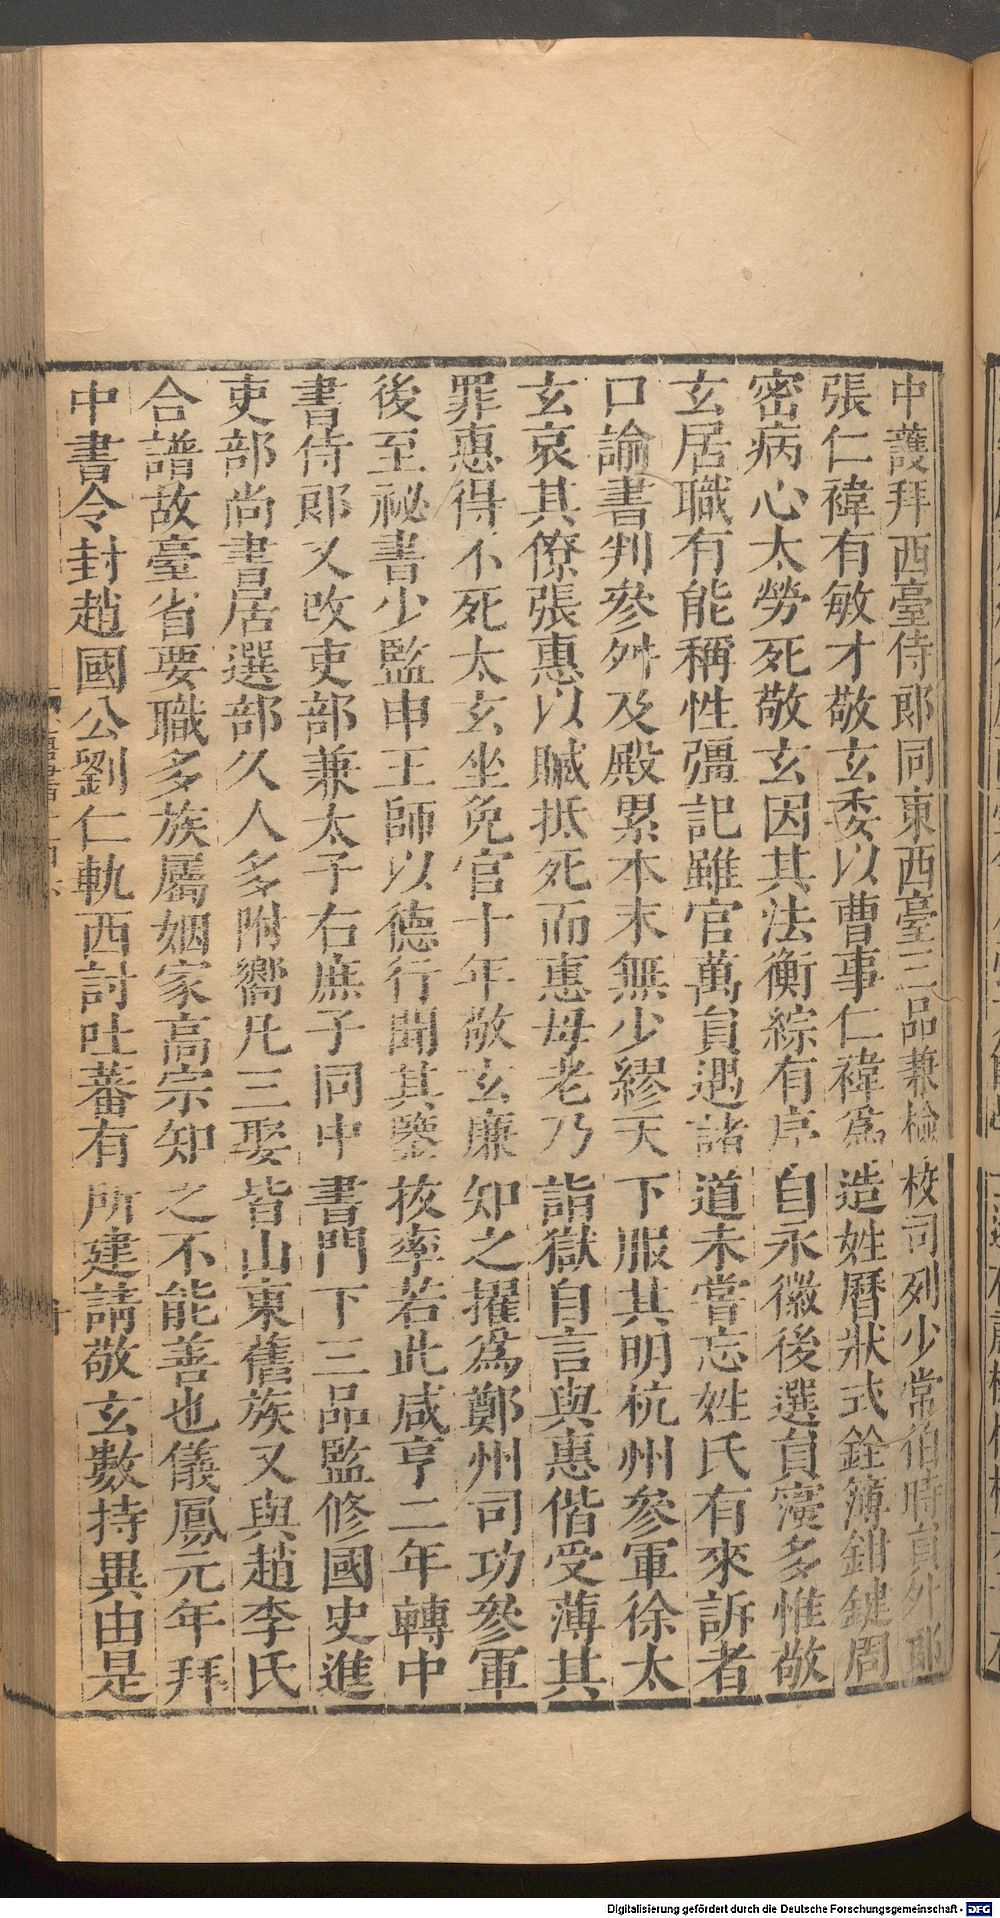 中護拜西臺侍郎同東西臺三品兼檢校司列少常伯時員外郎
張仁褘有敏才敬玄委以曹事仁褘爲造姓曆狀式銓簿鉗鍵周
密病心太勞死敬玄因其法衡綜有序自永徽後選員寖多惟敬
玄居職有能稱性彊記雖官萬員遇諸道未嘗忘姓氏有來訴者
口諭書判參舛及殿累本末無少繆天下服其明杭州參軍徐太
玄哀其僚張惠以贓抵死而惠母老乃詣獄自言與惠偕受薄其
罪惠得不死太玄坐免官十年敬玄廉知之擢爲鄭州司功參軍
後至祕書少監申王師以德行聞其鑒拔率若此咸亨二年轉中
書侍郎又改吏部兼太子右庶子同中書門下三品監修國史進
吏部尚書居選部久人多附嚮凡三娶皆山東舊族又與趙李氏
合譜故臺省要職多族屬姻家高宗知之不能善也儀鳳元年拜
中書令封趙國公劉仁軌西討吐蕃有所建請敬玄數持異由是
Digitalisierung gefördert durch die Deutsche Forschungsgemeinschaft - DFG